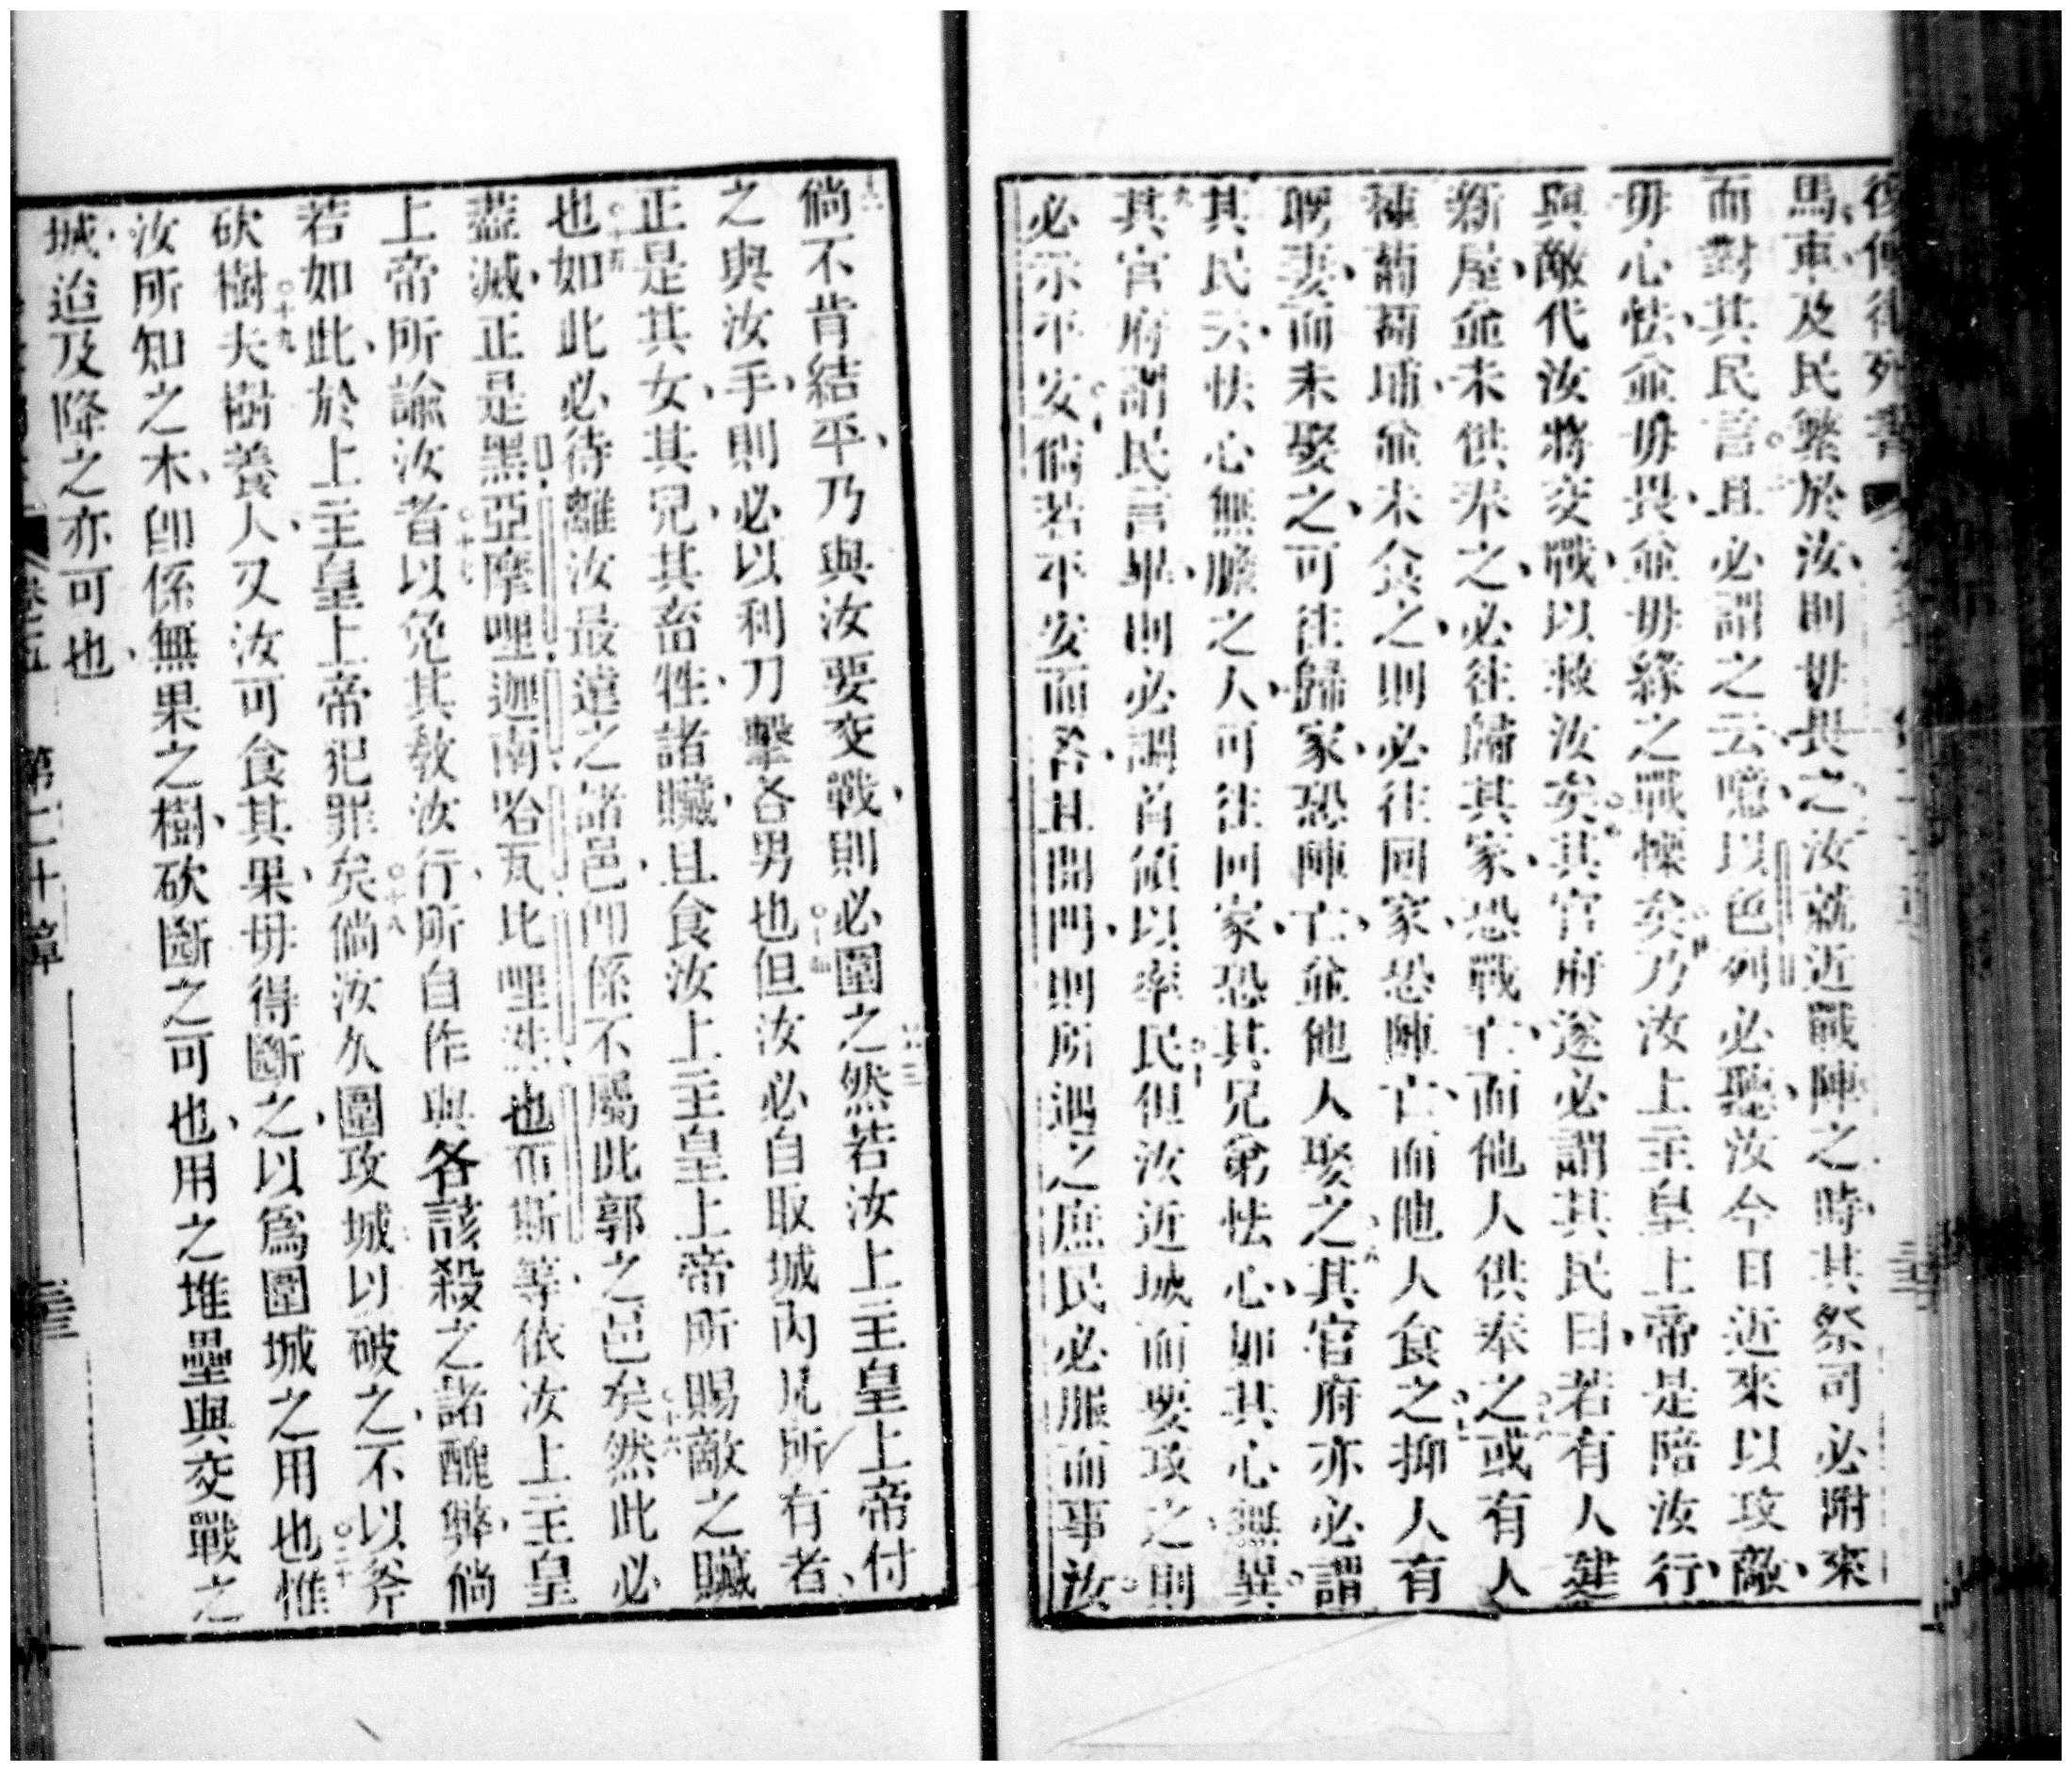 復傳律列書
馬車及民繁於汝則毋畏之汝就近戰陣之時其祭司必附來
而對其民言且必謂之云噫以色列必聽汝今日近來以攻敵
毋心怯並毋畏並毋緣之戰慄矣乃汝上主皇上帝是陪汝行
與敵代汝將交戰以救汝矣其官府遂必謂其民曰若有人建
新屋並未供奉之必往歸其家恐戰亡而他人供奉之或有人
種葡萄埔並未食之則必往回家恐陣亡而他人食之抑人有
聘妻而未娶之可往歸家恐陣亡並他人娶之其官府亦必謂
其民云怯心無膽之人可往回家恐其兄弟怯心如其心無異
其官府謂民言畢則必調首領以率民但汝近城而要攻之則
必示平安倘若平安而答且開門則所遇之庶民必服而事汝
倘不肯結平乃與汝要交戰則必圍之然若汝上主皇上帝付
之與汝手則必以利刀擊各男也但汝必自取城內凡所有者
正是其女其兒其畜牲諸贓且食汝上主皇上帝所賜敵之贓
也如此必待離汝最遠之諸邑即係不屬此郭之邑矣然此必
盡滅正是黑亞摩哩迦南哈瓦比哩洗也布斯等依汝上主皇
上帝所諭汝者以免其教汝行所自作與各該殺之諸醜弊倘
若如此於上主皇上帝犯罪矣倘汝久圍攻城以破之不以斧
砍樹夫樹養人又汝可食其果毋得斷之以為圍城之用也惟
汝所知之木即係無果之樹砍斷之可也用之堆壘與交戰之
城迨及降之亦可也
卷五 第二十章 三三